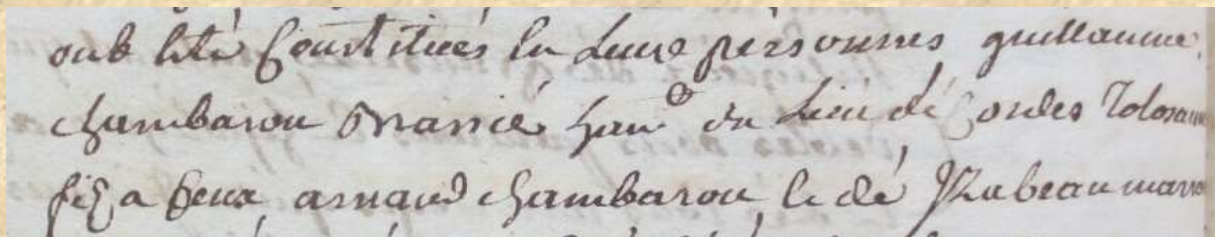 ont esté Constitués en Leurs personnes guillaume
chambarou marié han^t du Lieu de Cordes Tolosanne
fils a feux arnaud chambarou, & de Isabeau